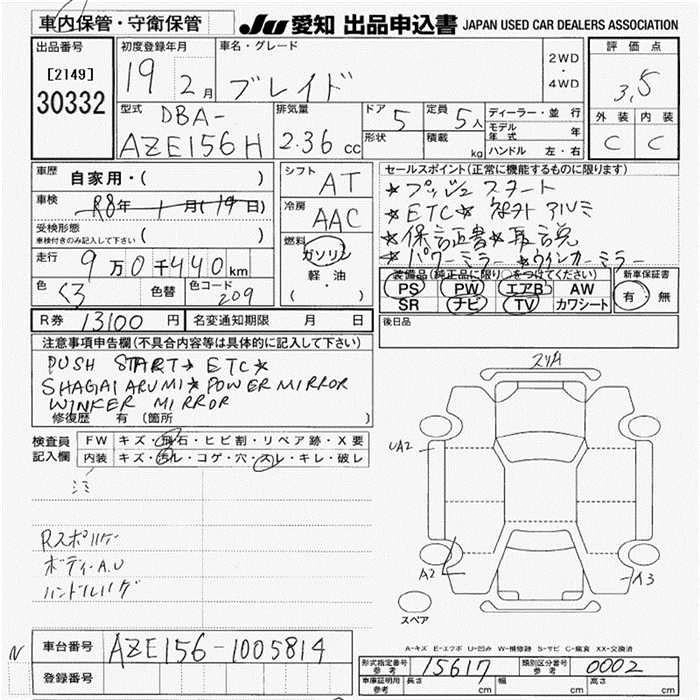 車内保管・守衛保管
JU 愛知 出品申込書 JAPAN USED CAR DEALERS ASSOCIATION
出品番号
[2149]
30332
初度登録年月
19 2月
車名・グレード
ブレイド
2WD
・
4WD
評価点
3.5
外装 内装
C C
型式
DBA-
AZE156H
排気量
2.36 cc
ドア 5
形状
定員 5人
積載 kg
ディーラー・並行
モデル年式 年
ハンドル 左・右
車歴 自家用・( )
車検 R8年 1月(19日)
受検形態
車検付きのみ記入して下さい ( )
走行 9万0千440km
色 クミ 色替 色コード 209
シフト AT
冷房 AAC
燃料
ガソリン
軽・油
( )
セールスポイント(正常に機能するものに限ります)
★プッシュスタート
★ETC★ 社外アルミ
★保証書★取説
★パワーミラー ★ウインカーミラー
装備品(純正品に限り○をつけてください)
PS PW エアB AW
SR ナビ TV カワシート
新車保証書
有・無
R券 13100円 名変通知期限 月 日
後日品
注意事項申告欄(不具合内容等は具体的に記入して下さい)
PUSH START★ ETC★
SHAGAI ARUMI★POWER MIRROR
WINKER MIRROR
修復歴 有 (箇所 )
検査員記入欄
FW キズ・飛石・ヒビ割・リペア跡・X要
内装 キズ・汚ル・コゲ・穴・スレ・キレ・破レ
Rスポ
ボディーA.U
ハンドル
スリキ
UA2
A2
A3
スペア
A-キズ E-エクボ U-凹み W-補修跡 S-サビ C-腐食 XX-交換済
N
車台番号 AZE156-1005814
登録番号
形式指定番号 参考 15617
類別区分番号 参考 0002
車庫証明用 参考 長さ cm 幅 cm 高さ cm